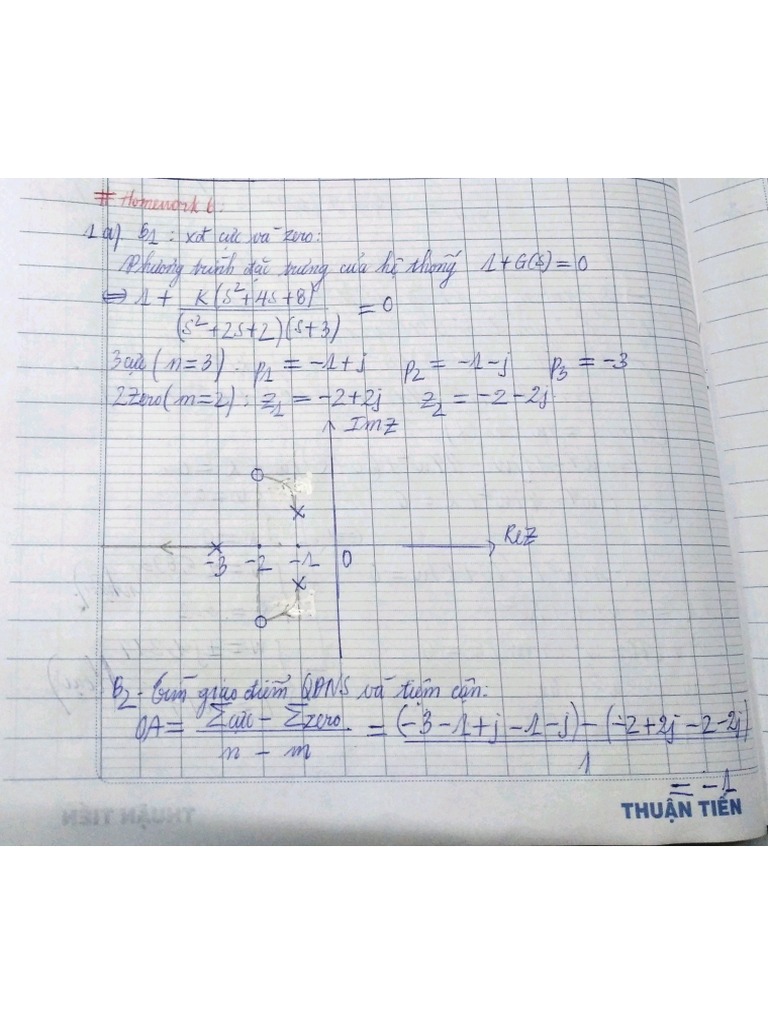 # Homework 6:
1a) B1: xđ cực và zero:
Phương trình đặc trưng của hệ thống 1+G(s)=0
⇔ 1 + K(s²+4s+8) / (s²+2s+2)(s+3) = 0
3 cực (n=3): p₁ = -1+j p₂ = -1-j p₃ = -3
2 Zero (m=2): z₁ = -2+2j z₂ = -2-2j
ImZ
ReZ
-3 -2 -1 0
B2 - Tìm giao điểm QĐNS và tiệm cận:
OA = Σcực - Σzero / n - m = (-3-1+j-1-j)-(-2+2j-2-2j) / 1
= -1
THUẬN TIẾN